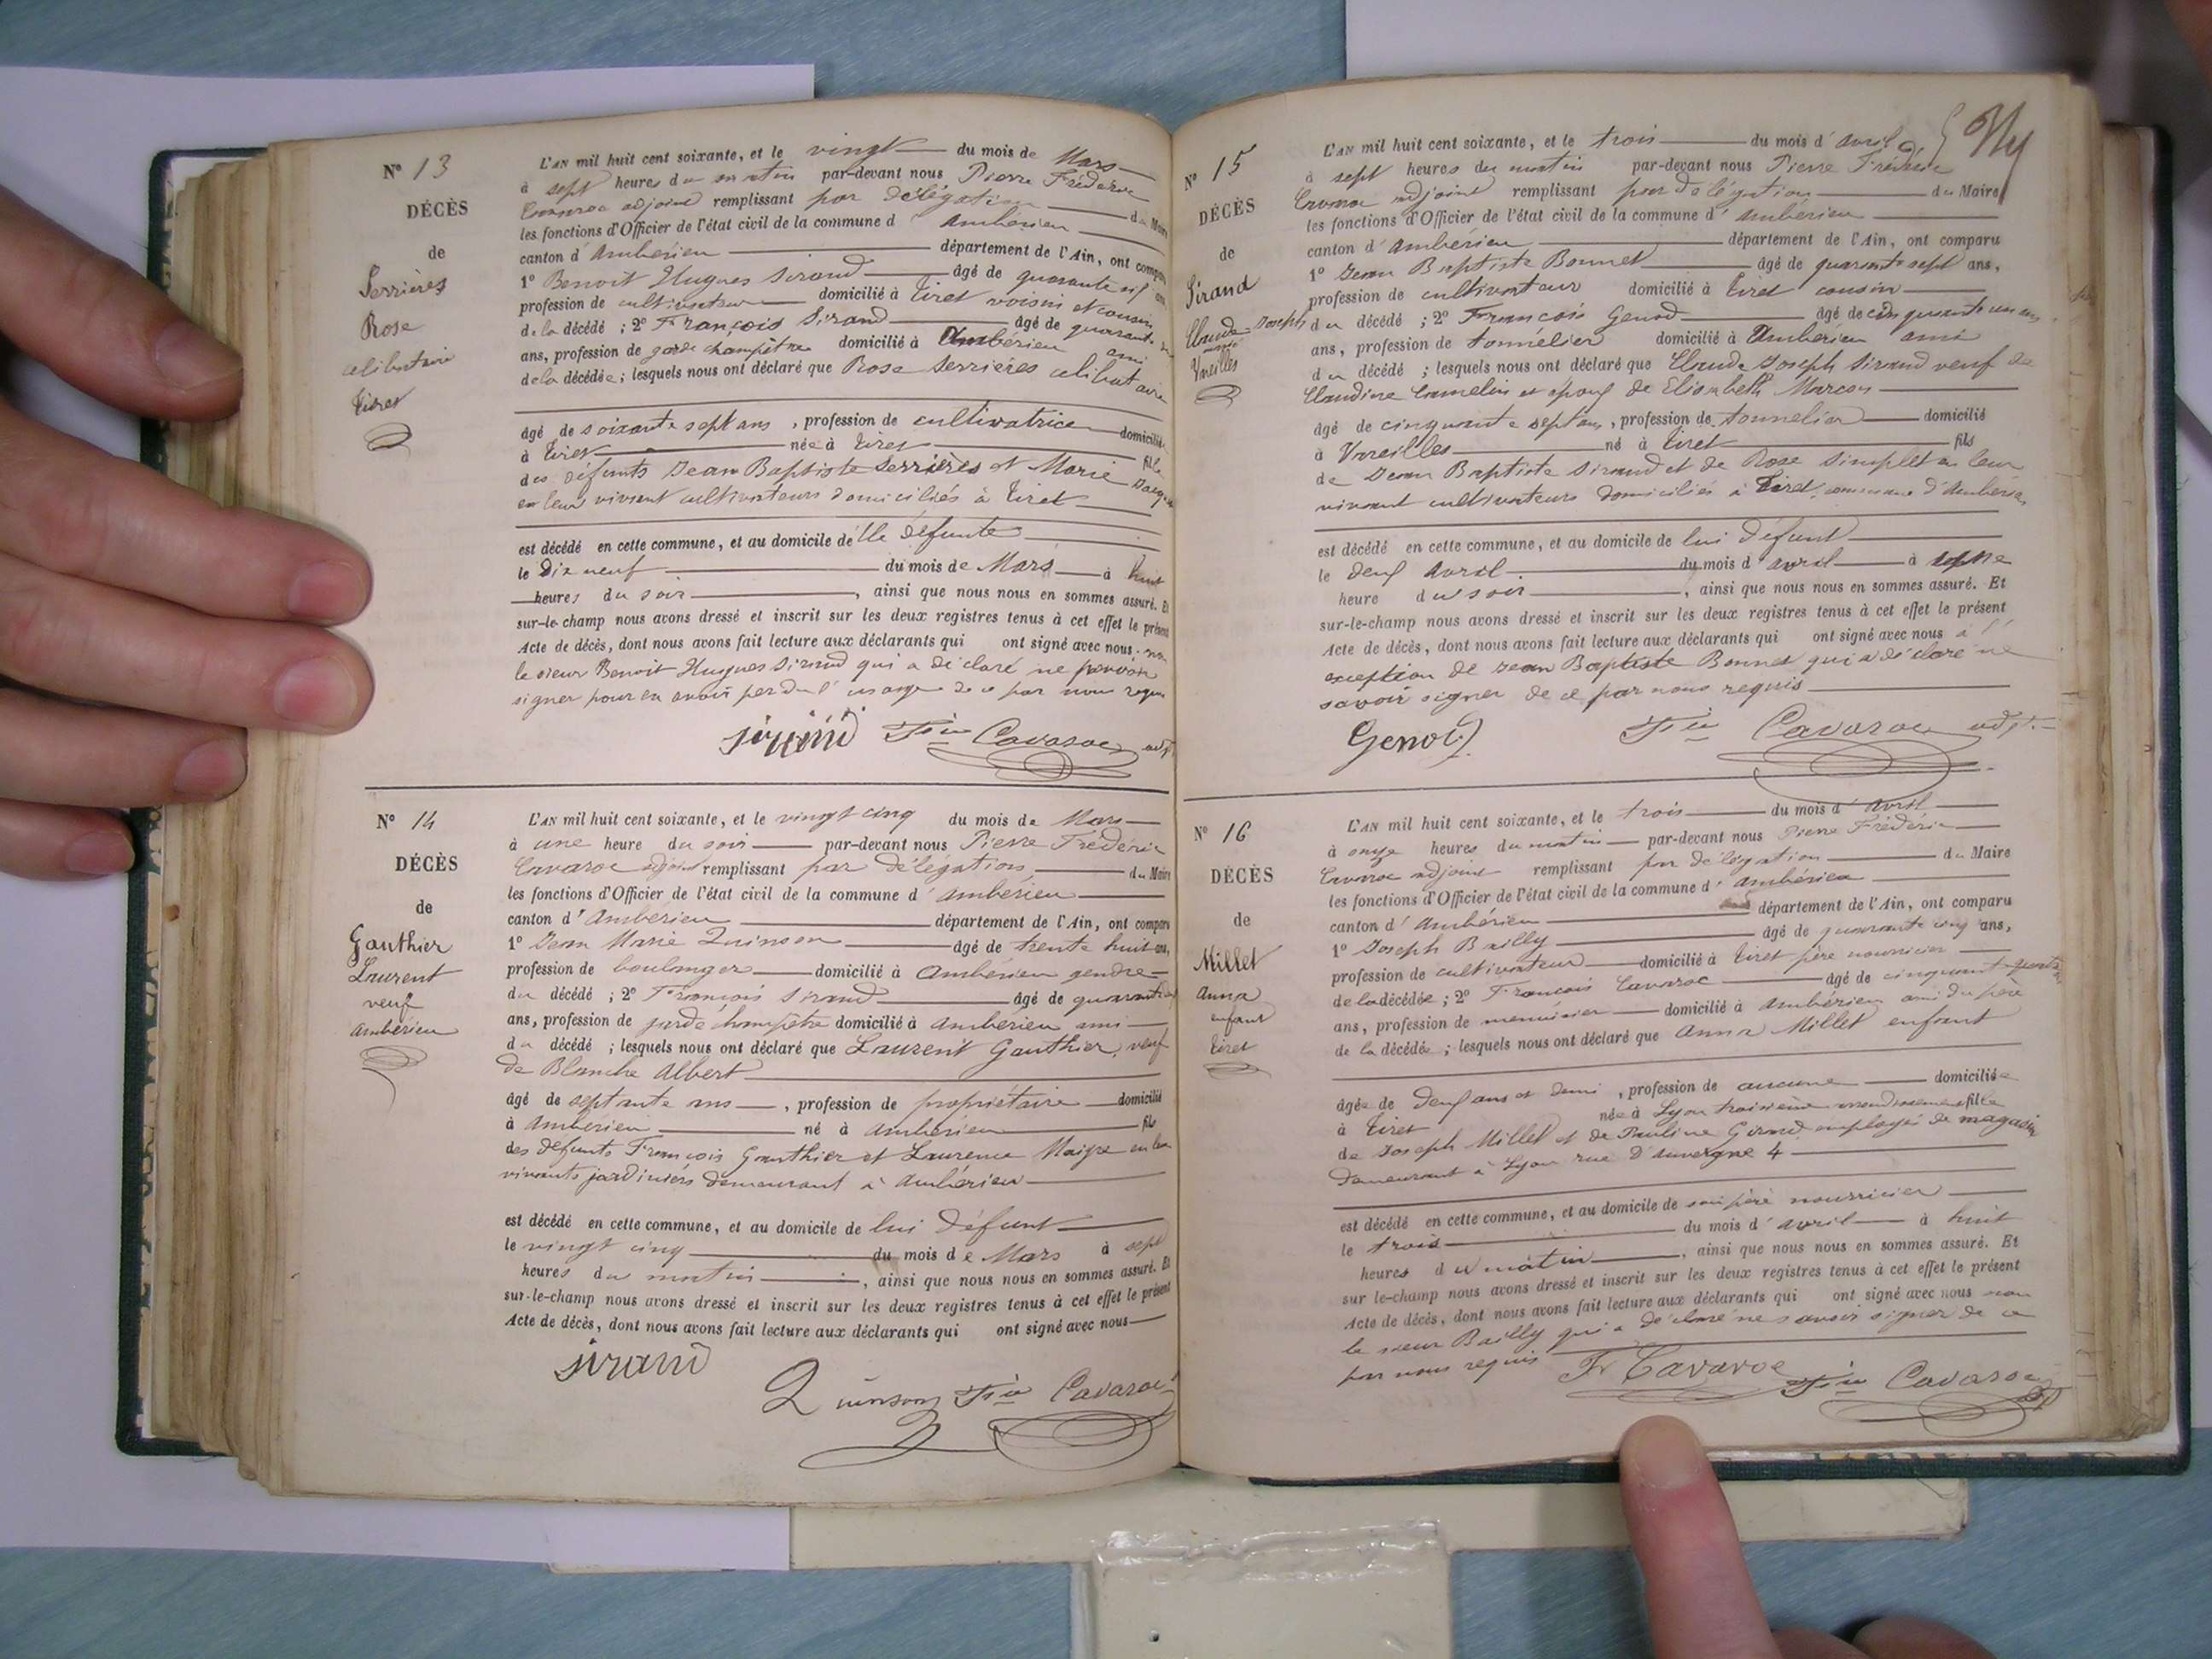 N° 13
DÉCÈS
de
Serrières
Rose
célibataire
Tiret
L'AN mil huit cent soixante, et le vingt du mois de Mars
à sept heures du matin par-devant nous Pierre Fréderic
Cavaroc adjoint remplissant par délégation du Maire
les fonctions d'Officier de l'état civil de la commune d' Ambérieu
canton d' Ambérieu département de l'Ain, ont comparu
1° Benoit Hugues Sirand âgé de quarante six ans
profession de cultivateur domicilié à Tiret voisin et cousin
de la décédé ; 2° François Sirand âgé de quarante
ans, profession de garde champêtre domicilié à Ambérieu ami
de la décédée ; lesquels nous ont déclaré que Rose Serrières célibataire
âgé de soixante sept ans , profession de cultivatrice domiciliée
à Tiret née à Tiret fille
des défunts Jean Baptiste Serrières et Marie
en leur vivant cultivateurs domiciliés à Tiret
est décédé en cette commune, et au domicile de elle défunte
le dix neuf du mois de Mars à huit
heures du soir , ainsi que nous nous en sommes assuré. Et
sur-le-champ nous avons dressé et inscrit sur les deux registres tenus à cet effet le présent
Acte de décès, dont nous avons fait lecture aux déclarants qui ont signé avec nous . non
le sieur Benoit Hugues Sirand qui a déclaré ne pouvoir
signer pour en avoir perdu l'usage de ce par nous requis
Sirand Fric Cavaroc adjt
N° 14
DÉCÈS
de
Gauthier
Laurent
veuf
Ambérieu
L'AN mil huit cent soixante, et le vingt cinq du mois de Mars
à une heure du soir par-devant nous Pierre Fréderic
Cavaroc adjoint remplissant par délégation du Maire
les fonctions d'Officier de l'état civil de la commune d' Ambérieu
canton d' Ambérieu département de l'Ain, ont comparu
1° Jean Marie Quinson âgé de trente huit ans,
profession de boulanger domicilié à Ambérieu gendre
du décédé ; 2° François Sirand âgé de quarante
ans, profession de garde champêtre domicilié à Ambérieu ami
du décédé ; lesquels nous ont déclaré que Laurent Gauthier, veuf
de Blanche Albert
âgé de septante ans , profession de propriétaire domicilié
à Ambérieu né à Ambérieu fils
des défunts François Gauthier et Laurence Maigre en leur
vivants jardiniers demeurant à Ambérieu
est décédé en cette commune, et au domicile de lui défunt
le vingt cinq du mois de Mars à sept
heures du matin , ainsi que nous nous en sommes assuré. Et
sur-le-champ nous avons dressé et inscrit sur les deux registres tenus à cet effet le présent
Acte de décès, dont nous avons fait lecture aux déclarants qui ont signé avec nous
Sirand
Quinson Fric Cavaroc
N° 15
DÉCÈS
de
Sirand
Claude-Joseph
marié
Vareilles
L'AN mil huit cent soixante, et le trois du mois d' avril
à sept heures du matin par-devant nous Pierre Fréderic
Cavaroc adjoint remplissant par délégation du Maire
les fonctions d'Officier de l'état civil de la commune d' Ambérieu
canton d' Ambérieu département de l'Ain, ont comparu
1° Jean Baptiste Bonnet âgé de quarante sept ans,
profession de cultivateur domicilié à Tiret cousin
du décédé ; 2° François Genod âgé de cinquante un ans
ans, profession de tonnelier domicilié à Ambérieu ami
du décédé ; lesquels nous ont déclaré que Claude Joseph Sirand veuf de
Claudine Camelin et époux de Elisabeth Marcon
âgé de cinquante sept ans , profession de tonnelier domicilié
à Vareilles né à Tiret fils
de Jean Baptiste Sirand et de Rose Simplet en leur
vivant cultivateurs domiciliés à Tiret, commune d'Ambérieu
est décédé en cette commune, et au domicile de lui défunt
le deux avril du mois d' avril à
heure du soir , ainsi que nous nous en sommes assuré. Et
sur-le-champ nous avons dressé et inscrit sur les deux registres tenus à cet effet le présent
Acte de décès, dont nous avons fait lecture aux déclarants qui ont signé avec nous à l'
exception de Jean Baptiste Bonnet qui a déclaré ne
savoir signer de ce par nous requis
Genod Fric Cavaroc adjt.
N° 16
DÉCÈS
de
Millet
Anna
enfant
Tiret
L'AN mil huit cent soixante, et le trois du mois d' avril
à onze heures du matin par-devant nous Pierre Fréderic
Cavaroc adjoint remplissant par délégation du Maire
les fonctions d'Officier de l'état civil de la commune d' Ambérieu
canton d' Ambérieu département de l'Ain, ont comparu
1° Joseph Bailly âgé de quarante cinq ans,
profession de cultivateur domicilié à Tiret père nourricier
de la décédée ; 2° François Cavaroc âgé de cinquante quatre
ans, profession de menuisier domicilié à Ambérieu ami du père
de la décédée ; lesquels nous ont déclaré que Anna Millet enfant
âgée de deux ans et demi , profession de aucune domiciliée
à Tiret née à Lyon troisième arrondissement fille
de Joseph Millet et de Pauline Girand employés de magasin
demeurant à Lyon rue d'Auvergne 4
est décédé en cette commune, et au domicile de son père nourricier
le trois du mois d' avril à huit
heures du matin , ainsi que nous nous en sommes assuré. Et
sur le-champ nous avons dressé et inscrit sur les deux registres tenus à cet effet le présent
Acte de décès, dont nous avons fait lecture aux déclarants qui ont signé avec nous non
le sieur Bailly qui a déclaré ne savoir signer de ce
par nous requis Fr Cavaroc Fric Cavaroc